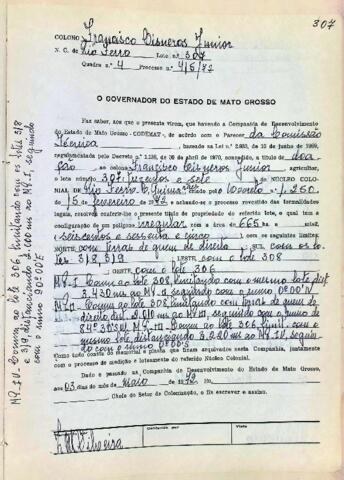 307
COLONO Francisco Cisneros Junior
N. C. de Rio Ferro Lote n.º 307
Quadra n.º 4 Processo n.º 415/72
O GOVERNADOR DO ESTADO DE MATO GROSSO
Faz saber, aos que o presente virem, que havendo a Companhia de Desenvolvimento
do Estado de Mato Grosso - CODEMAT-, de acordo com o Parecer da Comissão
Técnica baseado na Lei n.º 2.883, de 10 de junho de 1969
regulamentada pelo Decreto n.º 1.138, de 30 de abril de 1970, concedido, a título de doa
ção Francisco Cisneros Junior agricultor,
o lote número 307 Trezentos e sete do NÚCLEO COLO-
NIAL DE Rio Ferro pelo Decreto nº 1.250
de 15 de fevereiro de 1972 e achando-se o processo revestido das formalidades
legais, resolveu conferir-lhe o presente título de propriedade do referido lote, o qual tem
a configuração de um polígono irregular com a área de 665 ha.
seiscentos e sessenta e cinco com os seguintes limites:
com terras de quem de direito SUL com os lo
tes 318, 319 LESTE com o lote 308
OESTE com o lote 306
MP-I Comum ao lote 308, limitando com o mesmo lote dist.
3.430 ms ao MP-II, seguindo com o rumo 0º00'N
MP-II Comum ao lote 308 limitando com terras de quem de
direito dist. 2.010 ms ao MP-III, seguindo com o rumo de
84º30'SW MP-III Comum ao lote 306 limit. com o
mesmo lote, distanciando 3.220 ms ao MP-IV, seguin
do com o rumo 0º00'S
MP-IV Comum ao lote 306, limitando com os lotes 318
e 319, distanciando 2.000 ms ao MP-I, seguindo
com o rumo 90º00'E
Como tudo consta do memorial e planta que ficam arquivados nesta Companhia, juntamente
com o processo de medição e loteamento do referido Núcleo Colonial.
Dado e passado na Companhia de Desenvolvimento do Estado de Mato Grosso,
aos 03 dias do mês de Maio de 1972
Chefe do Setor de Colonização, o fiz escrever e assino.
Conferido
Visto